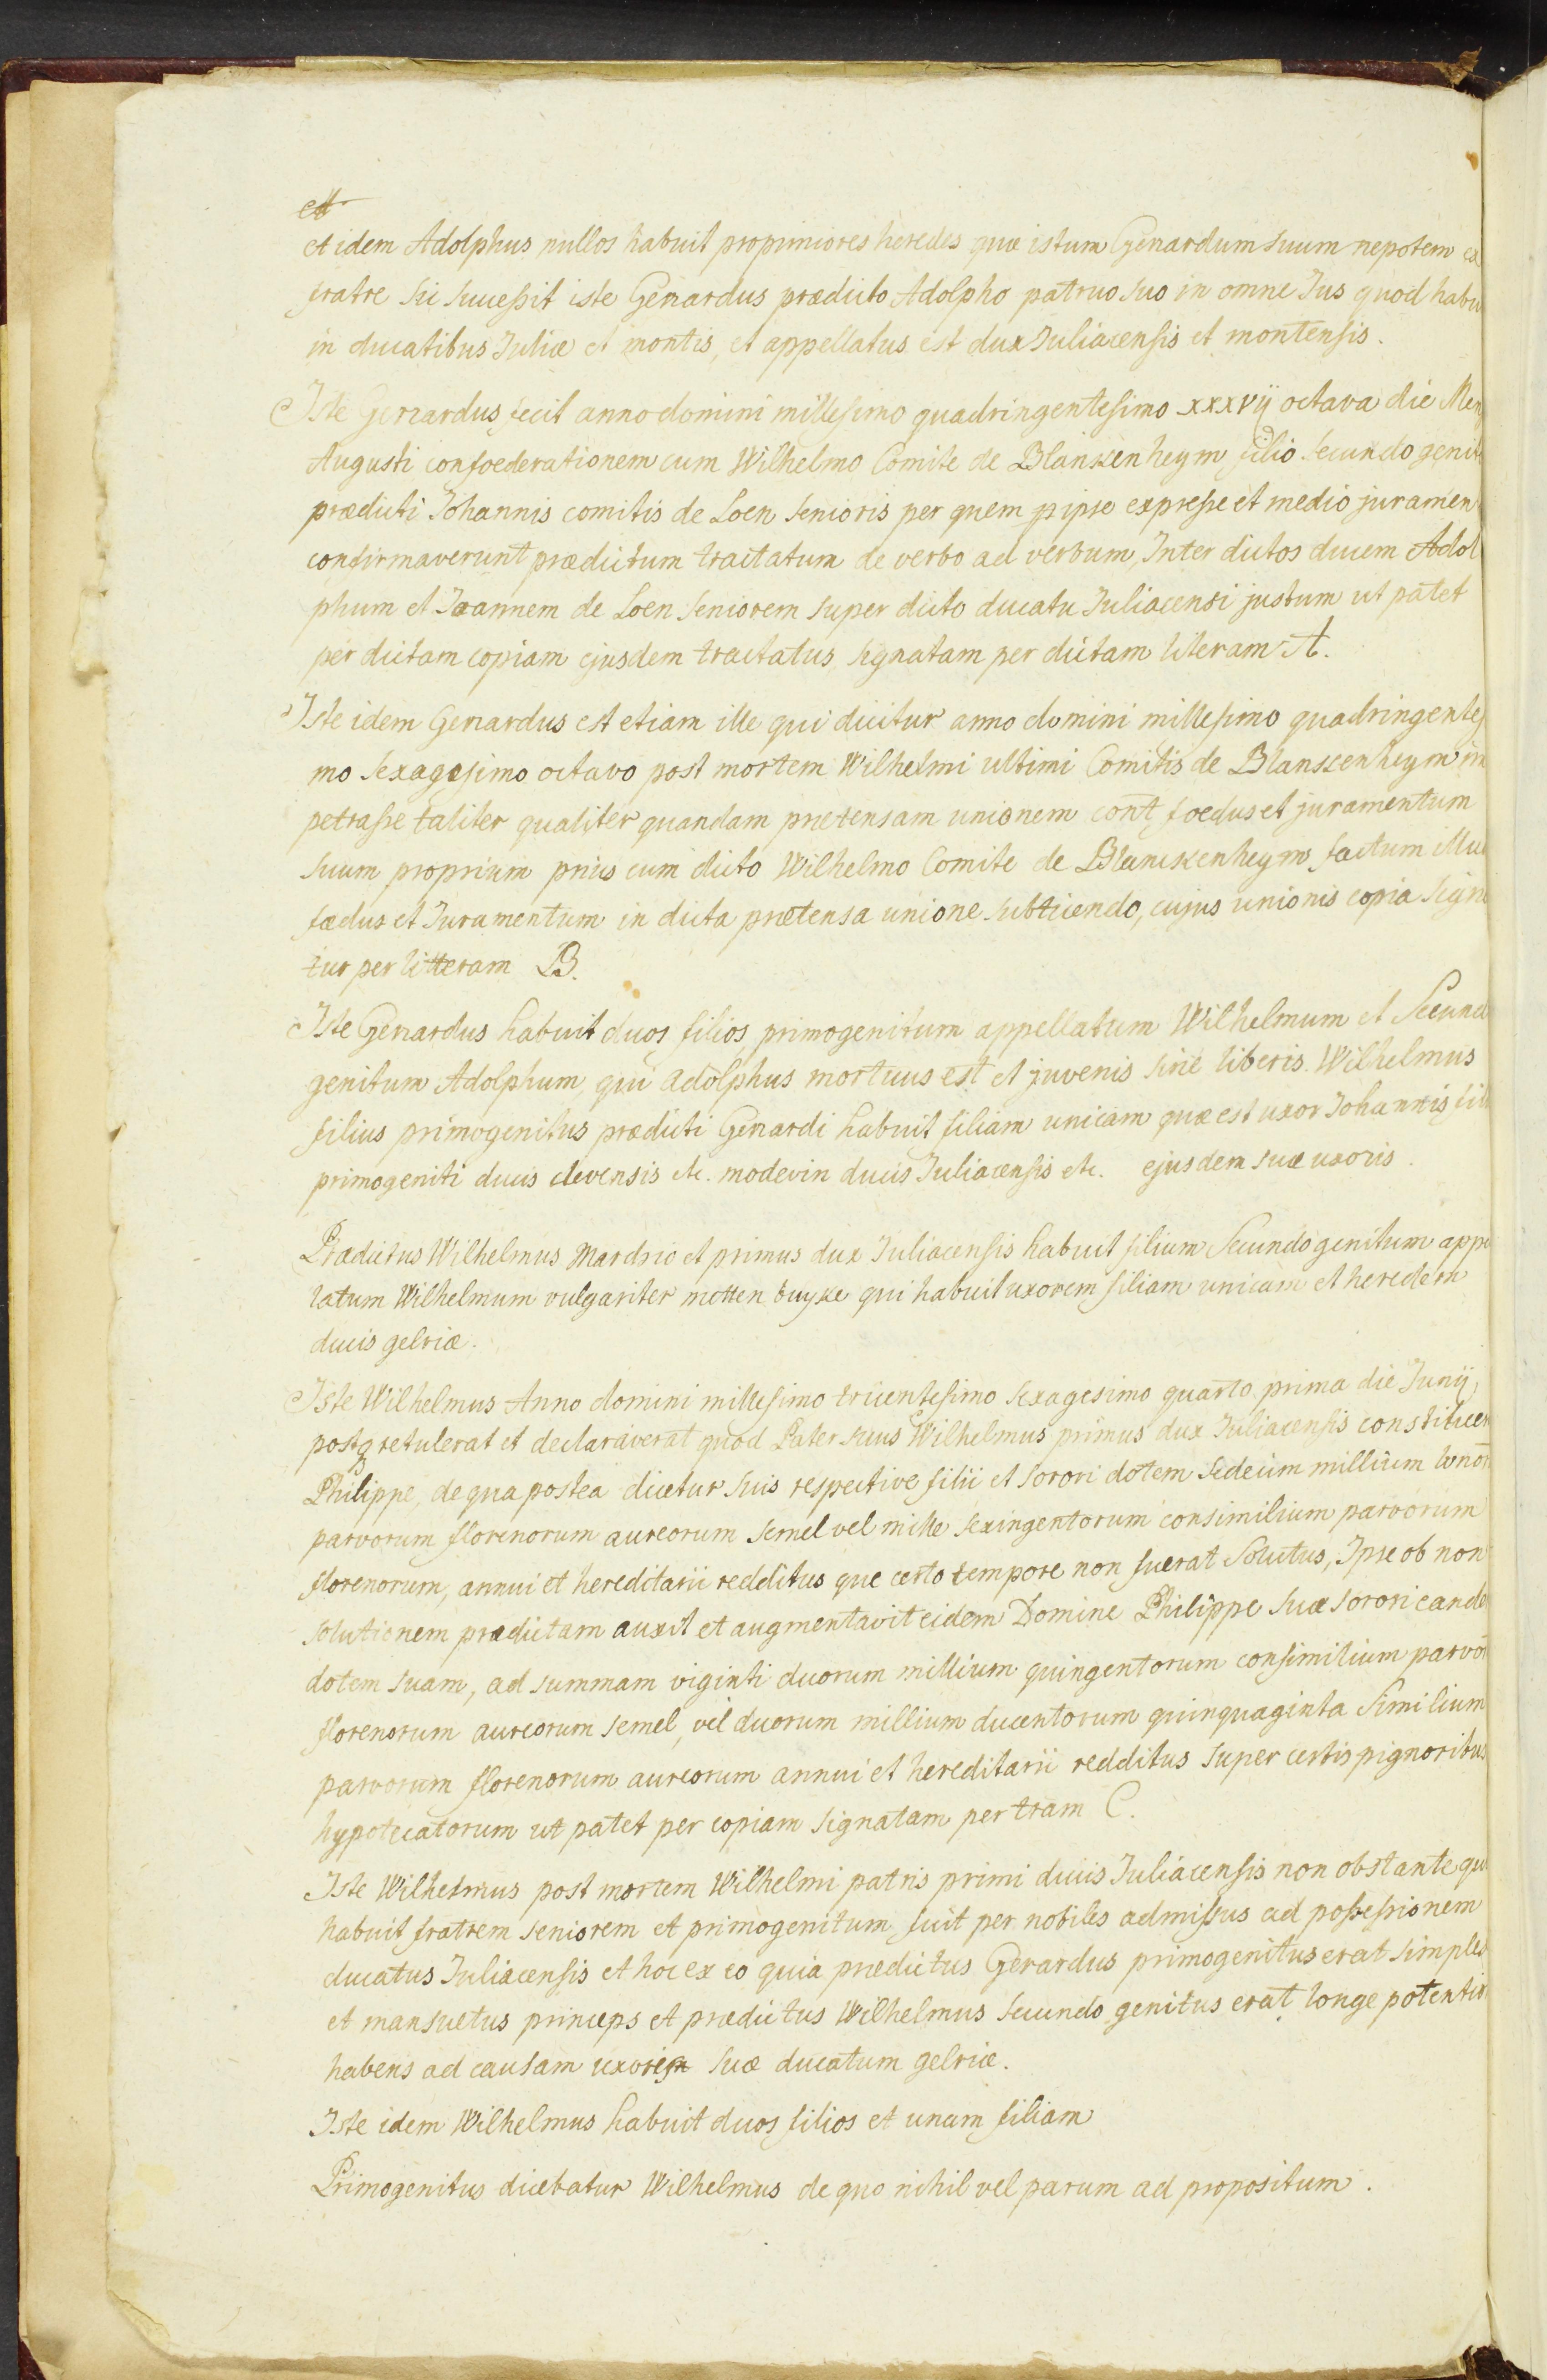 et
et idem Adolphus nullos habuit propinniores heredes quæ istum Gerardum suum nepotem ex
fratre sui sucessit iste Gerardus prædicto Adolpho patruo suo in omne Jus quod habu
in ducatibus Juliæ et montis, et appellatus est dux Juliacensis et montensis.
Iste Gerrardus fecit anno domini millesimo quadringentesimo xxxvij octava die Men
Augusti confoederationem cum Wilhelmo Comite de Blankenheym filio secundo genit
prædicti Johannis comitis de Loen senioris per quem ipse expresse et medio juramen
confirmaverunt prædictum tractatum de verbo ad verbum, Inter dictos ducem Adol
phum et Joannem de Loen seniorem super dicto ducatu Juliacensi justum ut patet
per dictam copiam ejusdem tractatus, signatam per dictam literam A.
Iste idem Gerrardus est etiam ille qui dicitur anno domini millesimo quadringentes
mo sexagesimo octavo post mortem Wilhelmi ultimi Comitis de Blanckenheym im
petrasse taliter qualiter quandam prætensam unionem cont foedus et juramentum
suum proprium prius cum dicto Wilhelmo Comite de Blanckenheym, factum illud
fædus et Juramentum in dicta prætensa unione subticendo, cujus unionis copia signa
tur per litteram B.
Iste Gerrardus habuit duos filios, primogenitum appellatum Wilhelmum et Secund
genitum Adolphum, qui adolphus mortuus est et juvenis sine liberis. Wilhelmus
filius primogenitus prædicti Gerrardi habuit filiam unicam quæ est uxor Johannis fili
primogeniti ducis clevensis etc. modevin ducis Juliacensis etc. ejusdem suæ uxoris.
Prædictus Wilhelmus Mardrio et primus dux Juliacensis habuit filium secundo genitum appe
latum Wilhelmum vulgariter metten buyke qui habuit uxorem filiam unicam et heredem
ducis gelriæ.
Iste Wilhelmus Anno domini millesimo tricentesimo sexagesimo quarto prima die Junij,
postq retulerat et declaraverat quod Pater suus Wilhelmus primus dux Juliacensis constituer
Philippe, de qua postea dicetur suis respective filii et sorori dotem sedecim millium bonor
parvorum florenorum aureorum semel vel mille sexingentorum consimilium parvorum
florenorum, annui et hereditarii redditus que certo tempore non fuerat solutus, Ipse ob non
solutionem prædictam auxit et augmentavit eidem Domine Philippe suæ sorori eande
dotem suam, ad summam viginti duorum millium quingentorum consimilium parvor
florenorum aureorum semel, vel duorum millium ducentorum quinquaginta similium
parvorum florenorum aureorum annui et hereditarii redditus super certis pignoribus
hypotecatorum ut patet per copiam signatam per tram C.
Iste Wilhelmus post mortem Wilhelmi patris primi ducis Juliacensis non obstante qu
habuit fratrem seniorem et primogenitum fuit per nobiles admissus ad possessionem
ducatus Juliacensis et hoc ex eo quia prædictus Gerardus primogenitus erat simplex
et mansuetus princeps et prædictus Wilhelmus secundo genitus erat longe potentio
habens ad causam uxoris suæ ducatum gelriæ.
Iste idem Wilhelmus habuit duos filios et unam filiam
Primogenitus dicebatur Wilhelmus de quo nihil vel parum ad propositum.